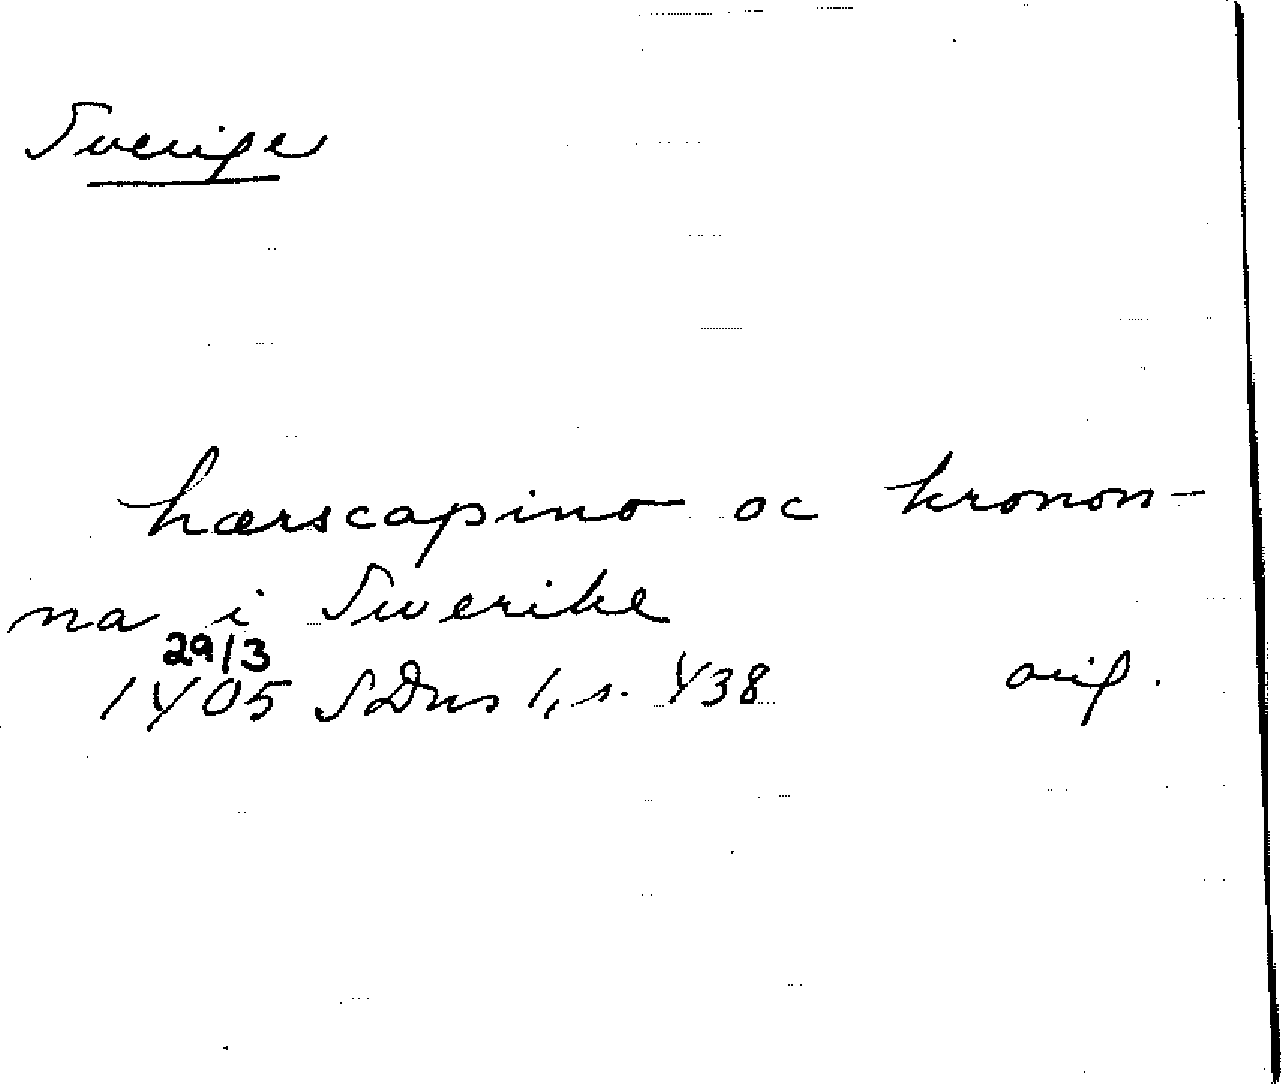 Sverige
hærscapino oc kronon-
na i Swerike
29/3
1405 SDns 1, s. 438 orig.